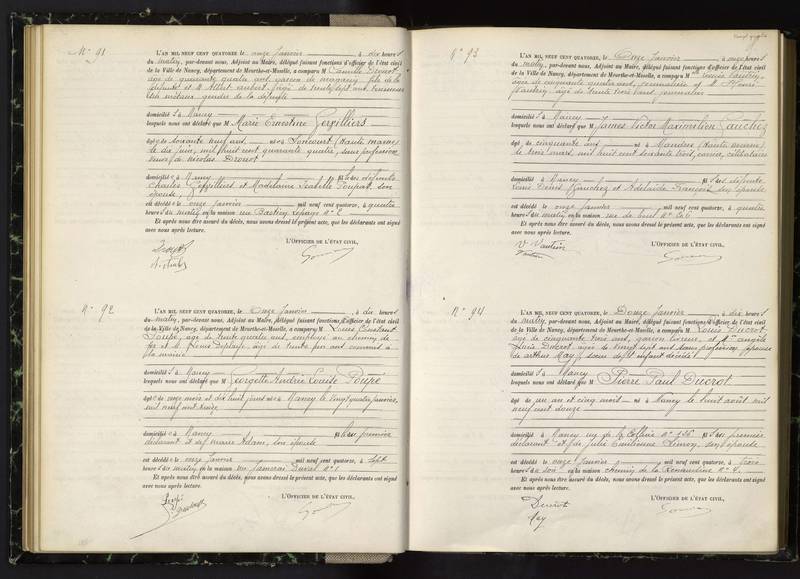 N° 91
L'AN MIL NEUF CENT QUATORZE, le onze Janvier, à dix heures
du matin, par-devant nous, Adjoint au Maire, délégué faisant fonctions d'officier de l'état civil
de la Ville de Nancy, département de Meurthe-et-Moselle, a comparu M Camille Drouot,
âgé de quarante quatre ans, garçon de magasin, fils de la
défunte et M Albert Aubert, âgé de trente sept ans,
gendre de la défunte
domicilié s à Nancy
lesquels nous ont déclaré que M Marie Ernestine Gerzilliers
âgé e de soixante neuf ans née à Soncourt (Haute Marne)
le dix juin, mil huit cent quarante quatre, sans profession,
veuve de Nicolas Drouot
domiciliée à Nancy fille des défunts
Charles Gerzilliers et Madelaine Isabelle Poupot, son
épouse,
est décédée le onze janvier mil neuf cent quatorze, à quatre
heures du matin, en la maison rue Bastien Lepage n° 2
Et après nous être assuré du décès, nous avons dressé le présent acte, que les déclarants ont signé
avec nous après lecture.
L'OFFICIER DE L'ÉTAT CIVIL,
Drouot
N° 92
L'AN MIL NEUF CENT QUATORZE, le Onze Janvier, à dix heures
du matin, par-devant nous, Adjoint au Maire, délégué faisant fonctions d'officier de l'état civil
de la Ville de Nancy, département de Meurthe-et-Moselle, a comparu M Louis Constant
Poupé, âgé de trente quatre ans, employé au chemin de
fer et M Henri, âgé de trente six ans, employé à
la mairie
domicilié s à Nancy
lesquels nous ont déclaré que M Georgette Andrée Louise Poupé
âgé e de onze mois et dix huit jours née à Nancy le vingt quatre janvier,
mil neuf cent treize
domiciliée à Nancy fille du premier
déclarant et de Marie Adam, son épouse
est décédée le onze janvier mil neuf cent quatorze, à sept
heures du matin, en la maison rue Jameray Duval n° 1
Et après nous être assuré du décès, nous avons dressé le présent acte, que les déclarants ont signé
avec nous après lecture.
L'OFFICIER DE L'ÉTAT CIVIL,
Poupé
N° 93
L'AN MIL NEUF CENT QUATORZE, le Onze Janvier, à onze heures
du matin, par-devant nous, Adjoint au Maire, délégué faisant fonctions d'officier de l'état civil
de la Ville de Nancy, département de Meurthe-et-Moselle, a comparu M Louise Vautrin,
âgée de cinquante quatre ans, journalière et M Henri
Vautrin, âgé de trente trois ans, journalier
domicilié s à Nancy
lesquels nous ont déclaré que M James Victor Maximilien Cauchez
âgé de cinquante ans né à Mandres (Haute Marne)
le trois mars, mil huit cent soixante trois, célibataire
domicilié à Nancy fils des défunts
Louis Denis Cauchez et Adélaïde François son épouse
est décédé le onze janvier mil neuf cent quatorze, à quatre
heures du matin, en la maison rue de Toul n° 206
Et après nous être assuré du décès, nous avons dressé le présent acte, que les déclarants ont signé
avec nous après lecture.
L'OFFICIER DE L'ÉTAT CIVIL,
V Vautrin
Vautrin
N° 94
L'AN MIL NEUF CENT QUATORZE, le Douze Janvier, à dix heures
du matin, par-devant nous, Adjoint au Maire, délégué faisant fonctions d'officier de l'état civil
de la Ville de Nancy, département de Meurthe-et-Moselle, a comparu M Louis Ducrot,
âgé de cinquante trois ans, garçon livreur, et Me Angèle
Ducrot, âgée de vingt sept ans, sans profession, épouse
de Arthur May, soeur de l'enfant décédé
domicilié s à Nancy
lesquels nous ont déclaré que M Pierre Paul Ducrot
âgé de un an et cinq mois né à Nancy le huit août mil
neuf cent douze
domicilié à Nancy rue de la Colline n° 156 fils du premier
déclarant et de Julie son épouse
est décédé le onze janvier mil neuf cent quatorze, à trois
heures du soir, en la maison chemin de la Renaudine n° 9
Et après nous être assuré du décès, nous avons dressé le présent acte, que les déclarants ont signé
avec nous après lecture.
L'OFFICIER DE L'ÉTAT CIVIL,
Ducrot
May